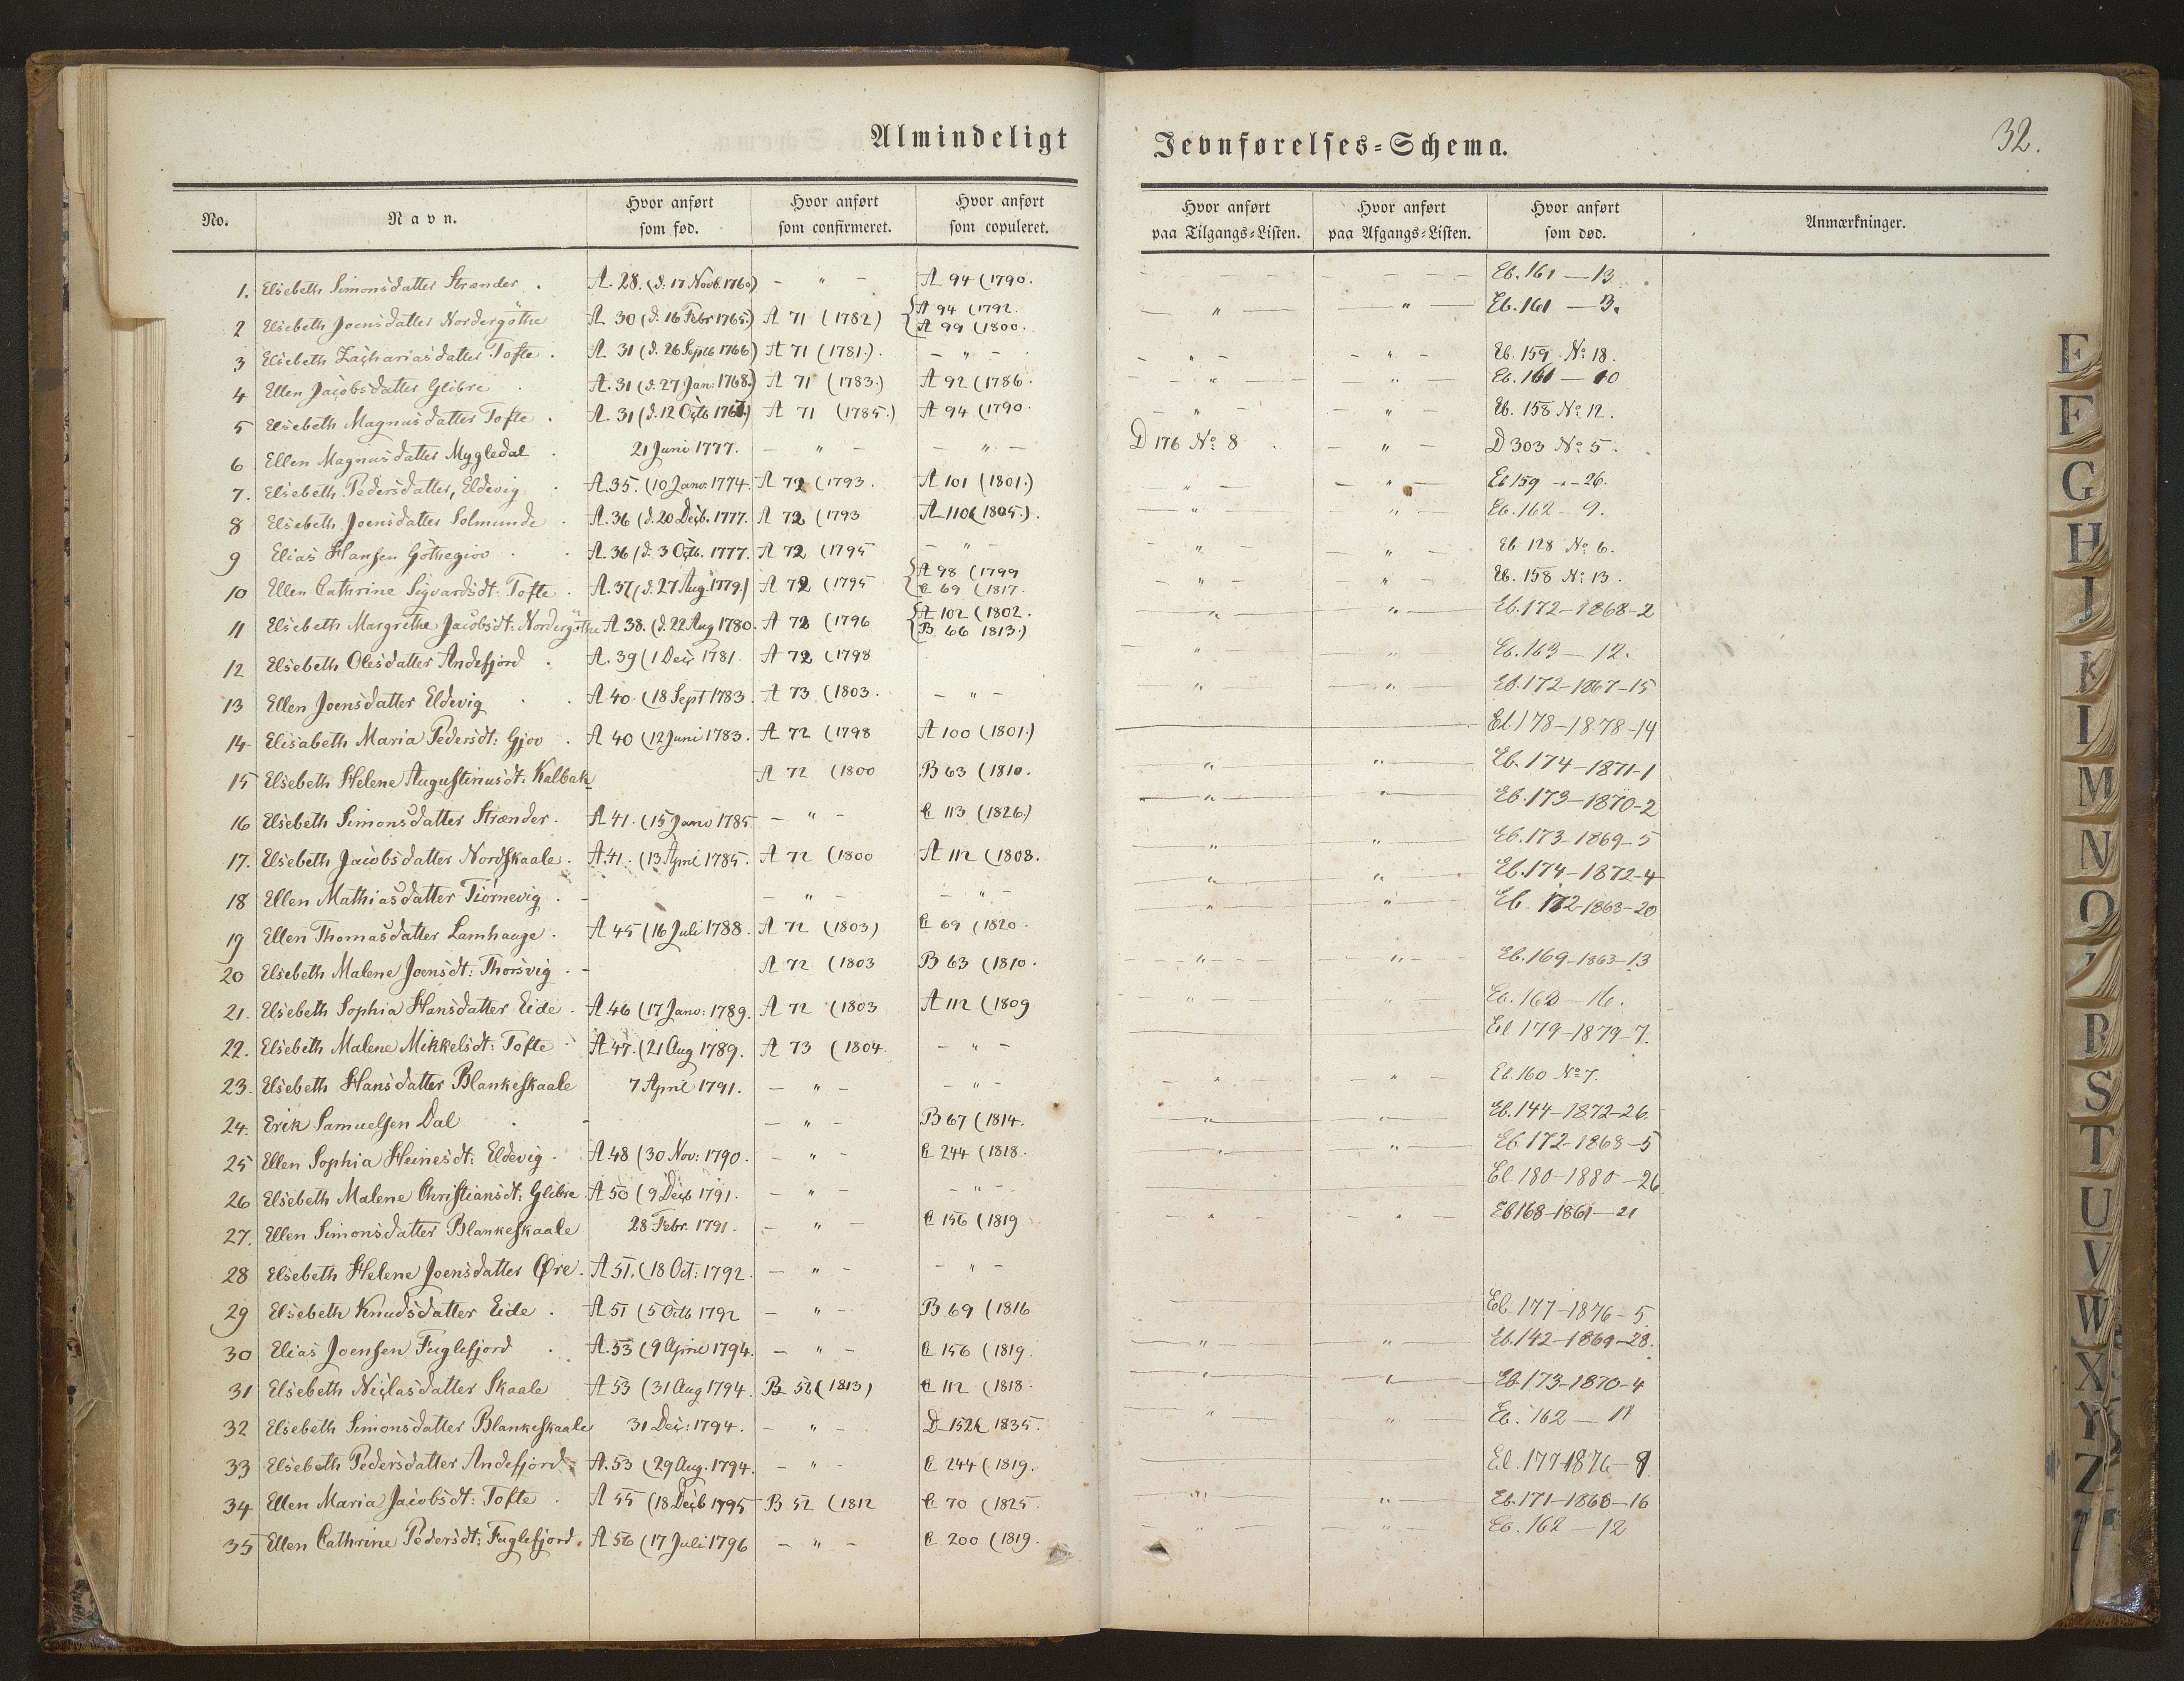 Almindeligt Jevnførelses=Schema. 32.
No. Navn. Hvor anført som fød. Hvor anført som confirmeret. Hvor anført som copuleret. Hvor anført paa Tilgangs=Listen. Hvor anført paa Afgangs=Listen. Hvor anført som død. Anmærkninger.
1. Elsebeth Simonsdatter Strænder . A. 28. (d. 17 Novb. 1760) - " - A 94 (1790. Eb. 161 — 13.
2 Elsebeth Joensdatter Nordergöthe A 30 (d. 16 Febr 1765.) A 71 (1782) {A 94 (1792. " " Eb. 161 — 3.
{A 99 (1800.
3 Elsebeth Zachariasdatter Tofte . A 31 (d. 26 Septb 1766) A 71 (1781.). - " - - " - - " - Eb. 159. No: 18.
4 Ellen Jacobsdatter Glibre . A. 31 (d. 27 Jan: 1768.) A 71 (1783.) A 92 (1786. " " Eb. 161 — 10
5 Elsebeth Magnusdatter Tofte . A. 31 (d. 12 Octb 1767.) A 71 (1785.) A 94 (1790. - " - " Eb. 158 No: 12.
6 Ellen Magnusdatter Mygledal . 21 Juni 1777. - " - - " - D 176 No: 8 . - " - D 303 No: 5.
7. Elsebeth Pedersdatter, Eldevig . A. 35. (10 Janv. 1774. A 72 (1793. A 101 (1801.) " " Eb 159 - " - 26.
8 Elsebeth Joensdatter Solmunde . A. 36 (d. 20 Decb. 1777. A 72 (1793 A 110 (1805.). " " Eb. 162 - 9.
9 Elias Hansen Göthegiov . . A. 36 (d. 3 Octb. 1777. A 72 (1795 - " - - " - " - Eb 128 No: 6.
10 Ellen Cathrine Sigvardsdt: Tofte . A. 37 (d. 27 Aug. 1779.) A 72 (1795 {A 98 (1799 - " - - " - Eb. 158 No: 13.
{C 69 (1817.
11 Elsebeth Margrethe Jacobsdt: Nordergöthe A 38. (d. 22 Aug 1780. A 72 (1796 {A 102 (1802. " " Eb. 172-1868-2
{B. 66 1813.)
12 Elsebeth Olesdatter Andefjord . A. 39 (1 Dec 1781. A 72 (1798 " " Eb. 163 — 12.
13 Ellen Joensdatter Eldevig . . A 40. (18 Sept 1783. A 73 (1803. - " - " " Eb. 172-1867-15
14 Elisabeth Maria Pedersdt: Gjov . A 40 (12 Juni 1783. A 72 (1798 A 100 (1801.) El. 178-1878-14
15 Elsebeth Helene Augustinusdt: Kalbak A 72 (1800 B 63 (1810. " " Eb. 174-1871-1
16 Elsebeth Simonsdatter Strænder. A 41. (15 Janv 1785 - " - C 113 (1826.) " " Eb. 173-1870-2
17. Elsebeth Jacobsdatter Nordskaale. A. 41. (13 April 1785. A 72 (1800 A 112 (1808. " " Eb. 173-1869-5
18 Ellen Mathiasdatter Tiörnevig . - - " - - " - " " Eb. 174-1872-4
19 Ellen Thomasdatter Lamhauge . A 45 (16 Juli 1788. A 72 (1803) C 69 (1820. " " Eb. 172-1868-20
20 Elsebeth Malene Joensdt: Thorsvig . - A 72 (1803 B 63 (1810. " " Eb. 169-1863-13
21. Elsebeth Sophia Hansdatter Eide . A. 46 (17 Janv: 1789. A 72 (1803 A 112 (1809 " " Eb. 162 - 16.
22. Elsebeth Malene Mikkelsdt: Tofte A 47. (21 Aug 1789. A 73 (1804. - " - El 179-1879-7.
23. Elsebeth Hansdatter Blankeskaale 7 April 1791. - " - - " - " " Eb. 160 No 7.
24. Erik Samuelsen Dal . - - " - B 67 (1814. " " Eb. 144-1872-26.
25 Ellen Sophia Heinesdt: Eldevig . A. 48 (30 Nov: 1790. - " - C 244 (1818. " " Eb. 172-1868-5
26 Elsebeth Malene Christiansdt: Glibre. A 50 (9 Decb 1791. - " - - " - El. 180-1880-26
27. Ellen Simonsdatter Blankeskaale 28 Febr. 1791. - " - C 156 (1819 " " Eb 168-1861-21
28 Elsebeth Helene Joensdatter Øre. A 51. (18 Oct: 1792. - " - - " -
29 Elsebeth Knudsdatter Eide . A 51 (5 Octb 1792 - " - B 69 (1816 El. 177-1876-5.
30 Elias Joensen Fuglefjord . A. 53 (9 April 1794. - " - C 156 (1819. " " Eb. 142-1869-28.
31 Elsebeth Niclasdatter Skaale A 53 (31 Aug 1794. B 52 (1813) C 112 (1818. " " Eb. 173-1870-4
32 Elsebeth Simonsdatter Blankeskaale 31 Dec: 1794. - " - D 152 (1835. " " Eb. 162 — 11
33 Elsebeth Pedersdatter Andefjord A. 53 (29 Aug. 1794. - " - C 244 (1819. El. 177-1876-9
34 Ellen Maria Jacobsdt: Tofte . A 55 (18 Decb 1795 B 52 (1812 C 70 (1825. " " Eb. 171-1866-16
35 Ellen Cathrine Pedersdt: Fuglefjord. A 56 (17 Juli 1796 - " - C 200 (1819. " " Eb. 162 — 12
E
F
G
H
J
K
L
M
N
O
R
S
T
U
V
W
X
Y
Z